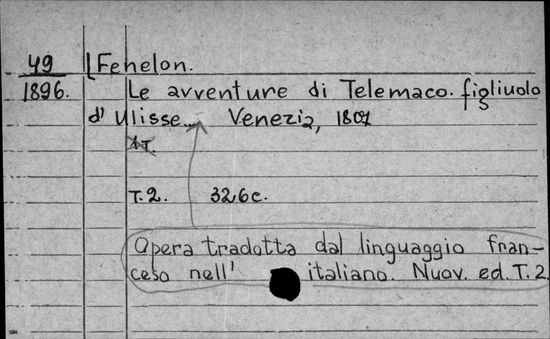 49 Fenelon.
1896. Le avventure di Telemaco. figliuolo
d' Ulisse. Venezia, 1807
1 T.
T. 2. 326 c.
Opera tradotta dal linguaggio fran-
ceso nell' italiano. Nuov. ed. T. 2